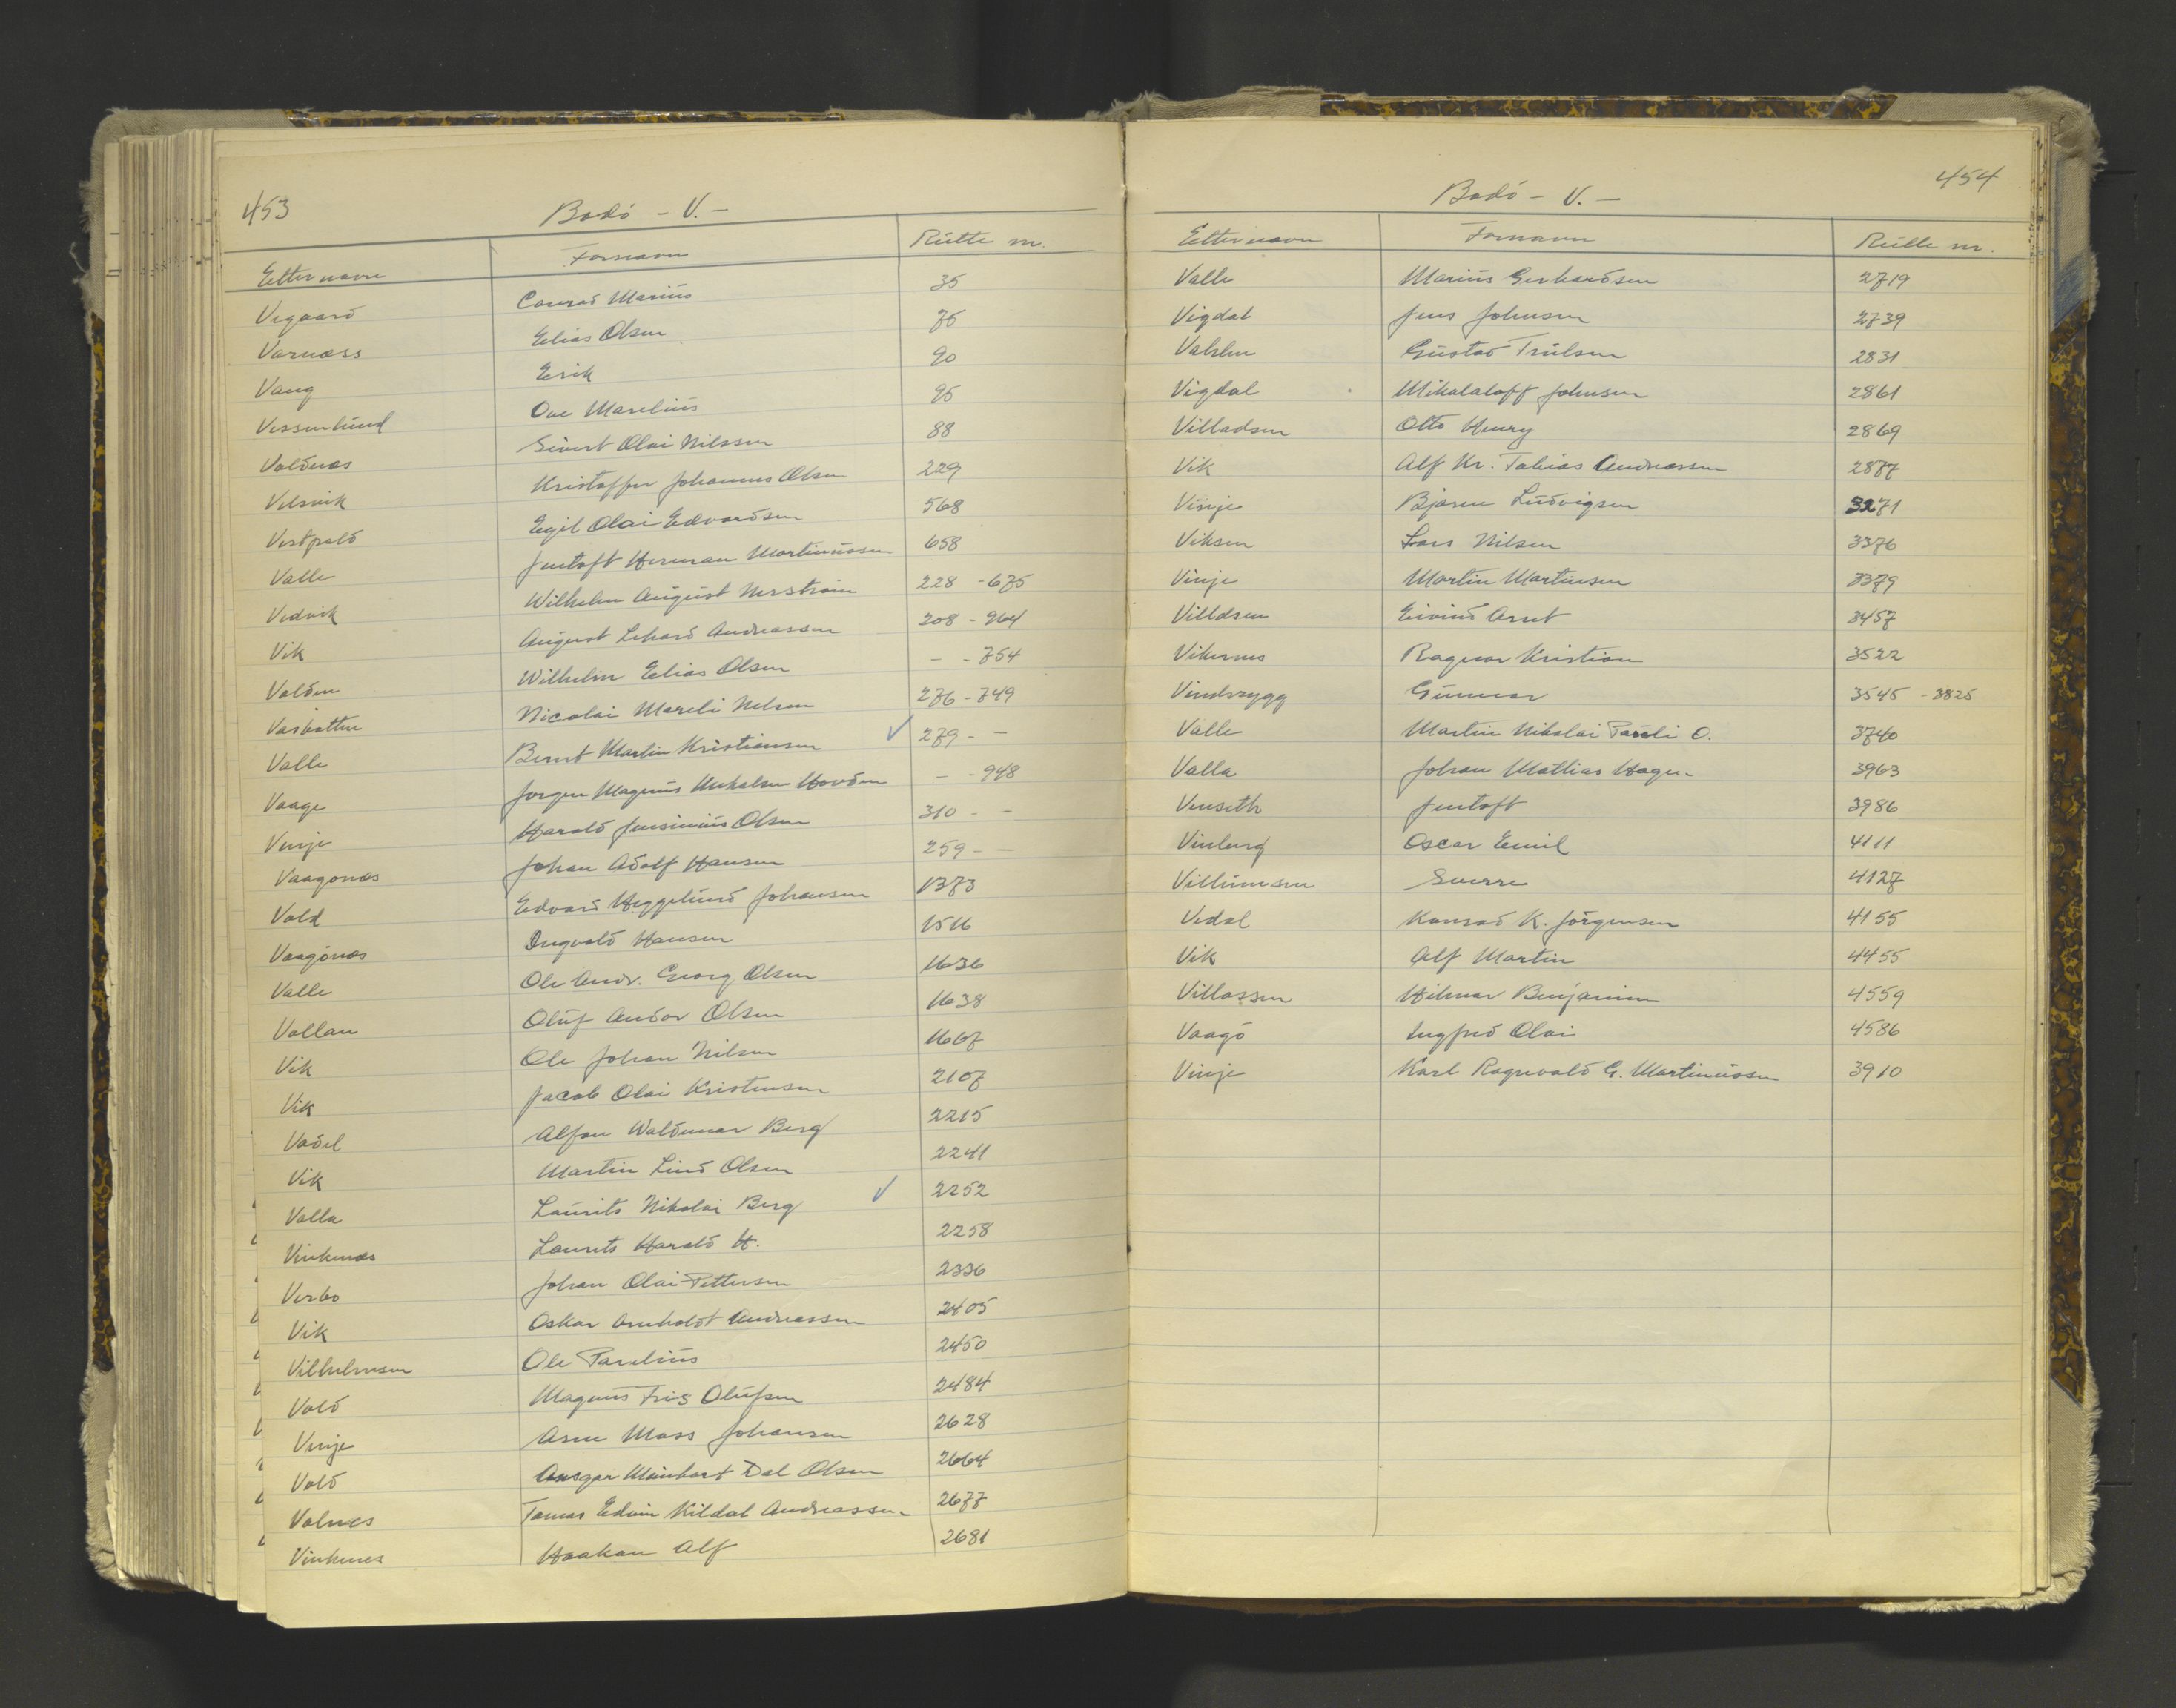 453
Bodö - V. -
Etternavn Fornavn Rulle nr.
Vegaard Conrad Marius 35
Varnæss Elias Olsen 75
Vang Erik 90
Vessenlund Ove Marelius 95
Valdnes Sivert Olai Nilssen 88
Velsvik Kristoffer Johannes Olsen 229
Vestpeld Egil Olai Edvardsen 568
Valle Jentoft Herman Martinussen 658
Vedvik Wilhelm August Nerström 228 - 675
Vik August Lehard Andreassen 208 - 964
Valden Wilhelm Elias Olsen - - 754
Vasbotten Nicolai Mareli Nelsen 276 - 749
Valle Bernt Martin Kristiansen ✓ 279 - -
Vaage Jorgen Magnus Mikalsen Hovden - - 948
Vinje Harald Jensinius Olsen 310 - -
Vaagönes Johan Adolf Hansen 259 - -
Vold Edvard Heggelund Johansen 1373
Vaagönes Ingvald Hansen 1516
Valle Ole Andr. Georg Olsen 1636
Vollan Oluf Andor Olsen 1638
Vik Ole Johan Nilsen 1667
Vik Jacob Olai Kristensen 2107
Vadel Alfon Waldemar Berg 2215
Vik Martin Lind Olsen 2241
Valla Laurits Nikolai Berg ✓ 2252
Vinkenes Laurits Harald H. 2258
Verbo Johan Olai Pettersen 2336
Vik Oskar Arnholdt Andreassen 2405
Vilhelmsen Ole Parelius 2450
Vold Magnus Friis Olufsen 2484
Vinje Arne Moss Johansen 2628
Vold Ansgar Meinhart Dal Olsen 2664
Valnes Tomas Edvin Kildal Andreassen 2677
Vinkenes Haakon Alf 2681
454
Bodö - V. -
Etternavn Fornavn Rulle nr.
Valle Marius Gerhardsen 2719
Vigdal Jens Johnsen 2739
Gustav Trulsen 2831
Vigdal Mikalaloff Johnsen 2861
Villadsen Otto Henry 2869
Vik Alf Kr. Tobias Andreassen 2877
Vinje Bjarne Ludvigsen 3271
Viksen Lars Nilsen 3376
Vinje Martin Martinsen 3379
Villdsen Eivind Arnt 3457
Vikernes Ragnar Kristian 3522
Vindrygg Gunnar 3545 - 3825
Valle Martin Nikolai Pauli O. 3740
Valla Johan Mathias Hagen 3963
Venseth Jentoft 3986
Vinberg Oscar Emil 4111
Villumsen Sverre 4127
Vedal Konrad K. Jörgensen 4155
Vik Alf Martin 4455
Villassen Hilmar Benjamin 4559
Vaagö Ingfred Olai 4586
Vinje Karl Ragnvald G. Martinussen 3910